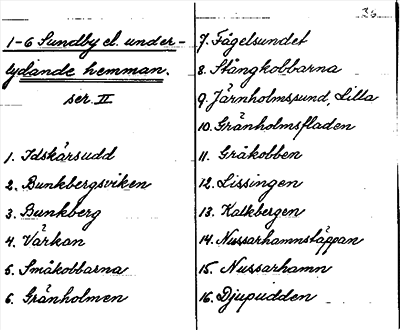 1-6 Sundby el. under-
lydande hemman.
ser. II
1. Idskärsudd
2. Bunkbergsviken
3. Bunkberg
4. Värkan
5. Småkobbarna
6. Gränholmen
36
7. Fågelsundet
8. Stångkobbarna
9. Järnholmssund, Lilla
10. Gränholmsfladen
11. Gråkobben
12. Lissingen
13. Kalkbergen
14. Nussarhamnstäppan
15. Nussarhamn
16. Djupudden